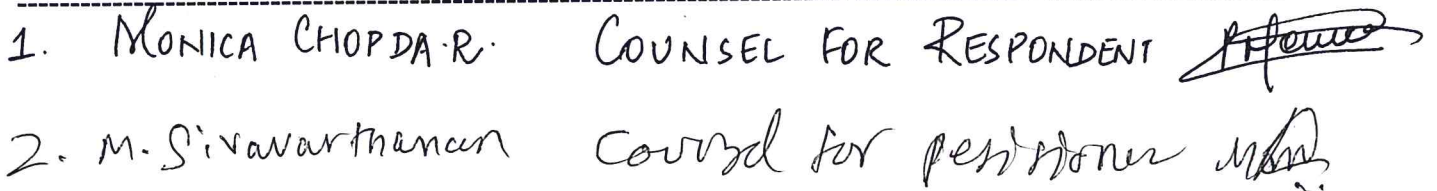 1. MONICA CHOPDA.R. COUNSEL FOR RESPONDENT
2. M. Sivavarthanan Counsel for petitioner